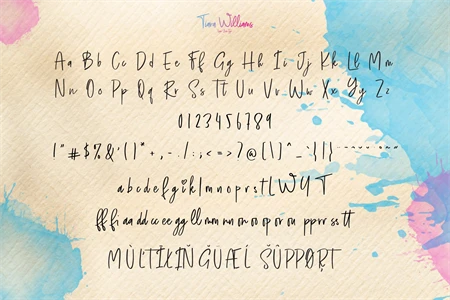 Tiara Williams
Aa Bb Cc Dd Ee Ff Gg Hh Ii Jj Kk Ll Mm
Nn Oo Pp Qq Rr Ss Tt Uu Vv Ww Xx Yy Zz
0123456789
!"#$%&'()*+,-./:;<=>?@[\]^_`{|}
abcdefgiklmnoprstLWYT
ff fi aa dd cc ee gg ll mm nn on ro or ou pp rr ss tt
MÙLTÏLĮŇĞUÆĹ ŠÛPPØŖT